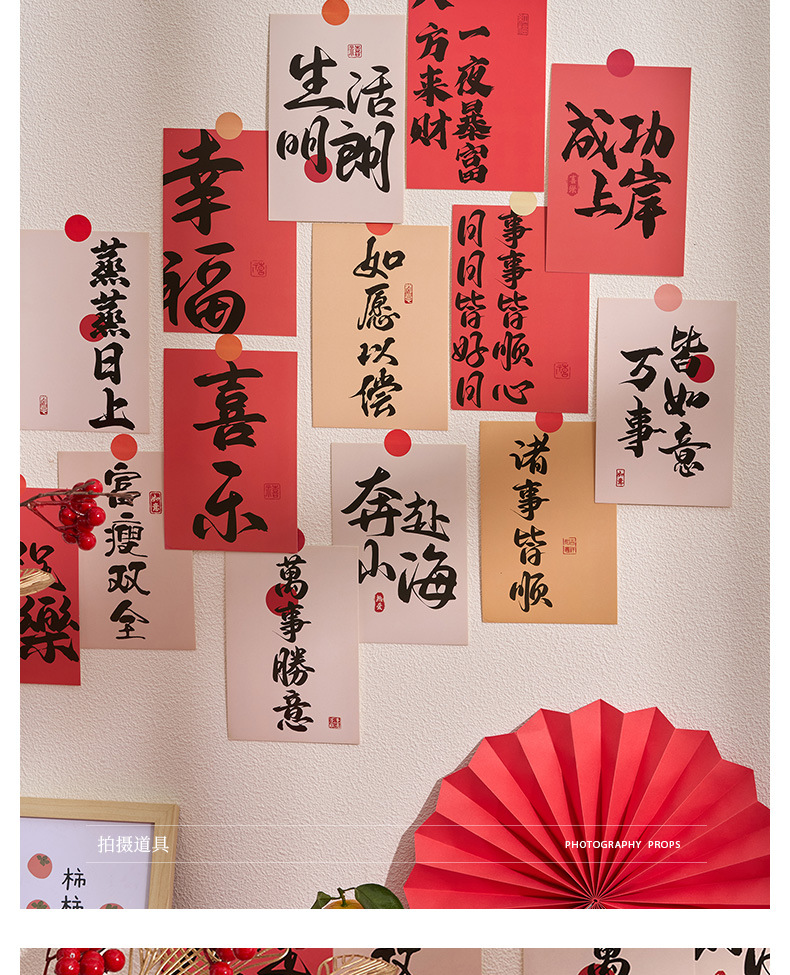 生活
明朗
一夜暴富
八方来财
成功
上岸
幸福
蒸蒸日上
如愿以偿
事事皆顺心
日日皆好日
皆如意
万事
喜乐
富瘦双全
奔赴
山海
诸事皆顺
萬事勝意
樂
拍摄道具
PHOTOGRAPHY PROPS
柿
柿